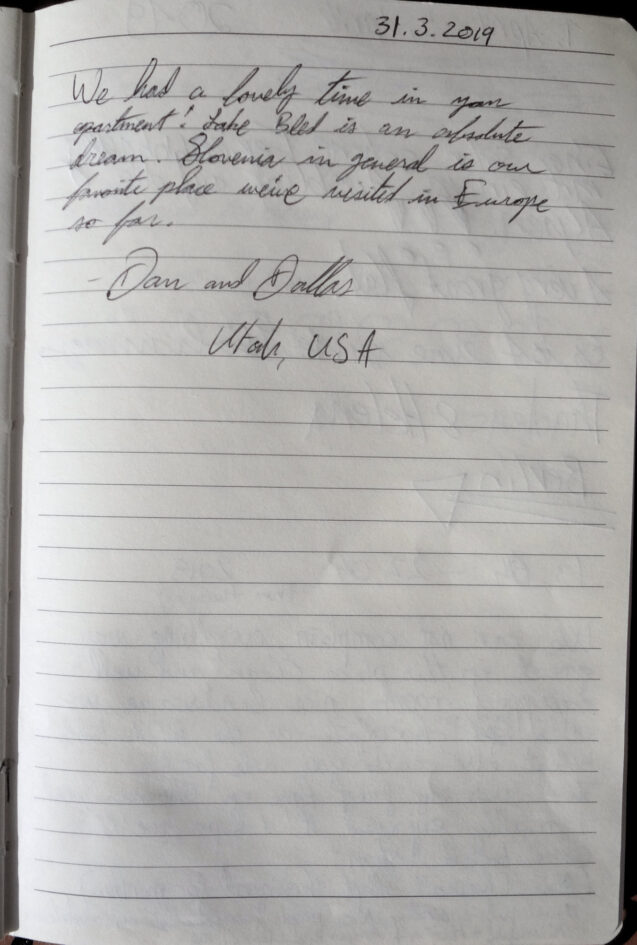 31.3.2019
We had a lovely time in your
apartment! Lake Bled is an absolute
dream. Slovenia in general is our
favorite place we've visited in Europe
so far.
- Dan and Dallas
Utah, USA